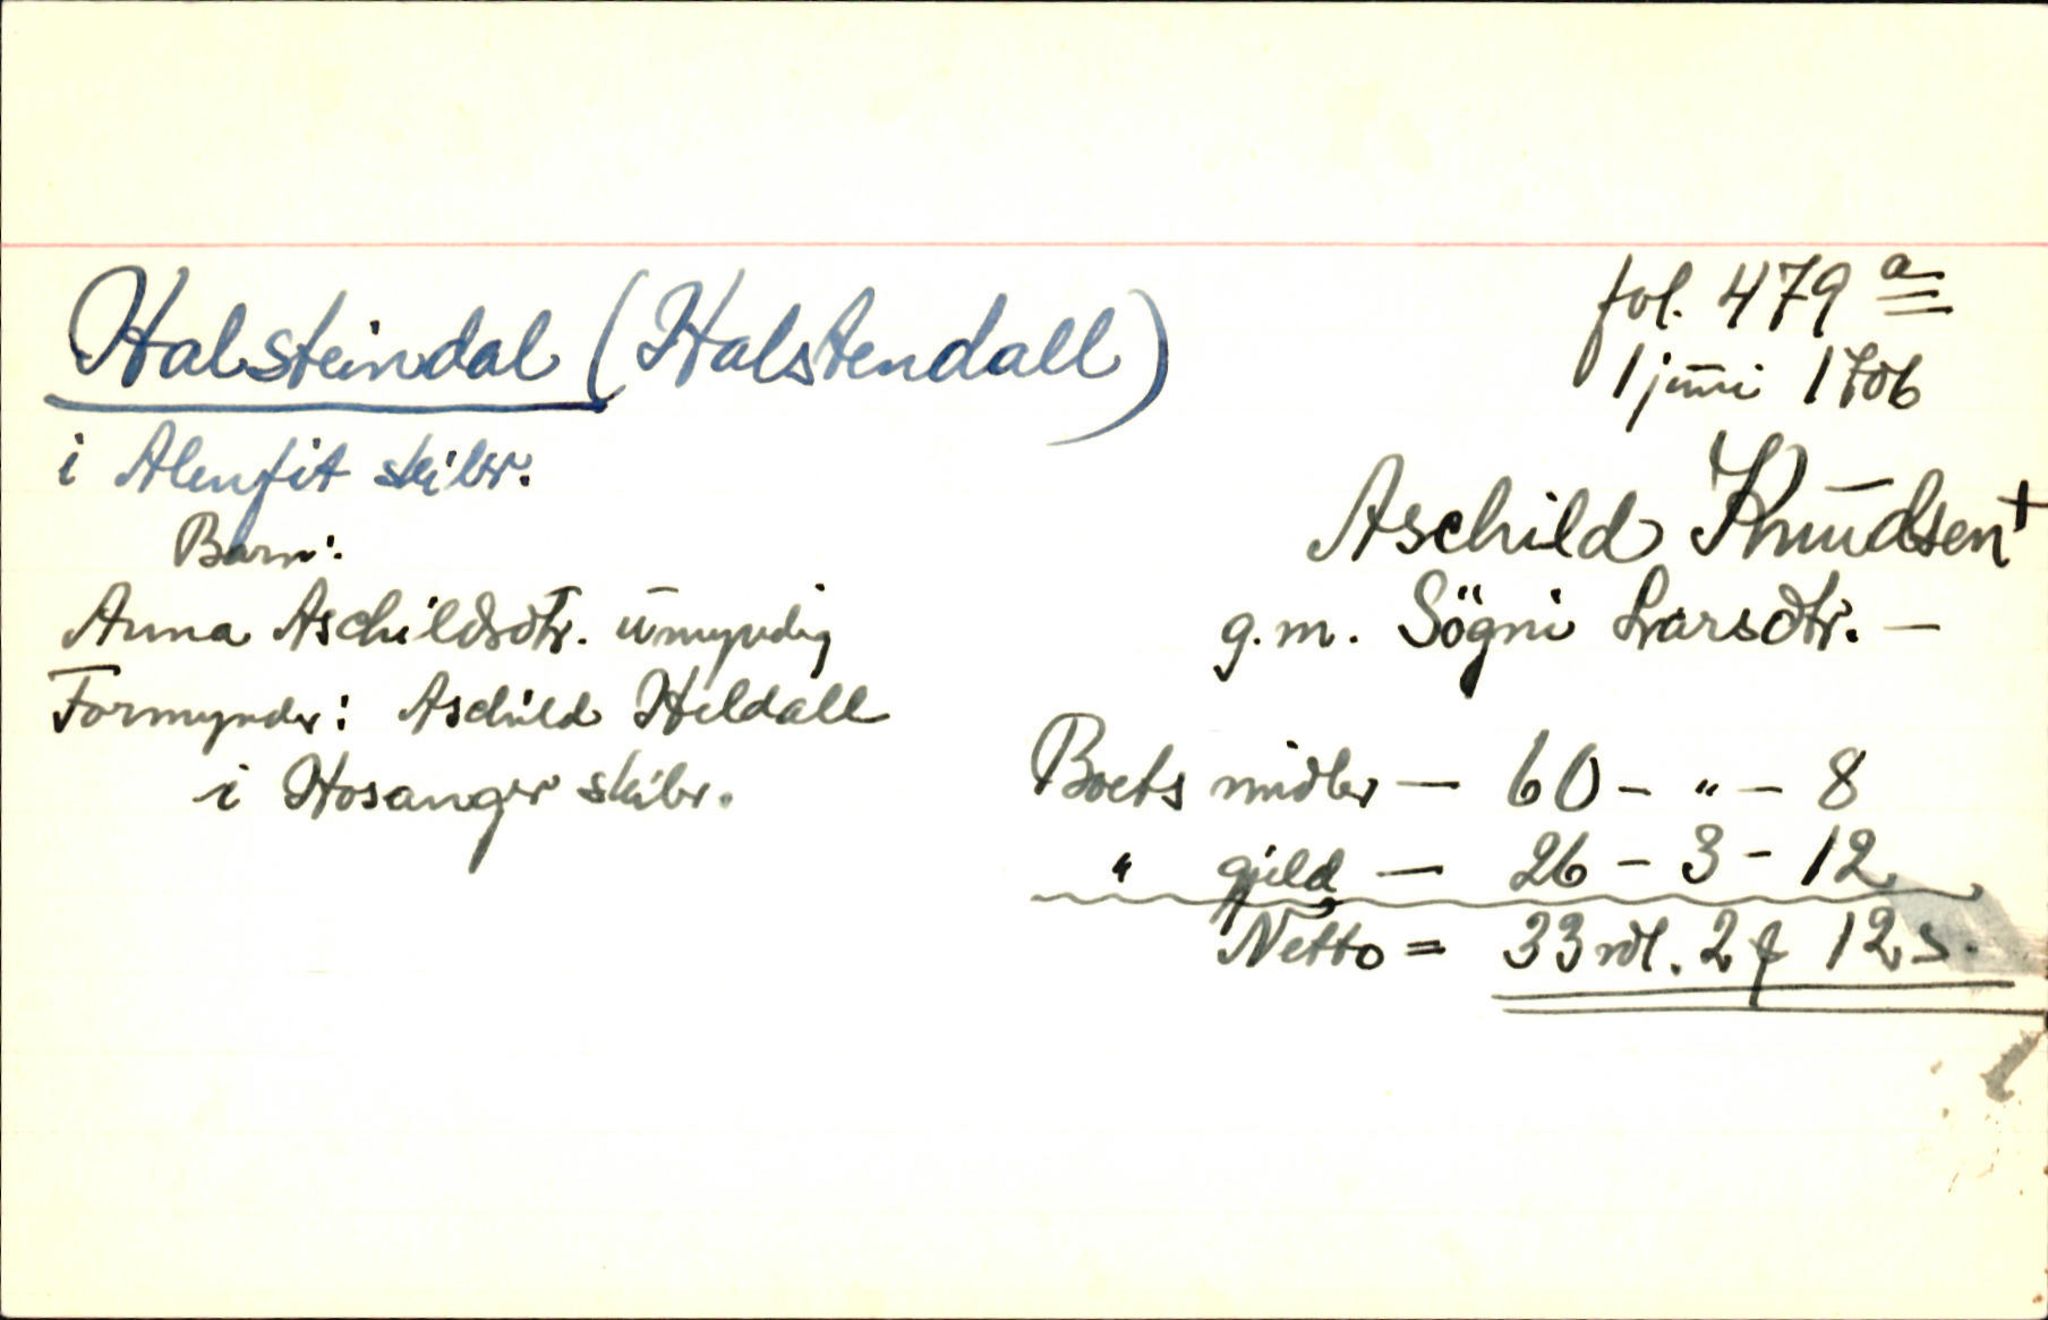 Halsteindal (Halstendall)
i Alenfit skibr.
Barn:
Anna Aschildsdtr. umyndig
Formynder: Aschild Heldall
i Hosanger skibr.
fol. 479 a
1 juni 1706
Aschild Knudsen +
g.m. Sögni Larsdtr. —
Boets midler — 60 - " - 8
" gjeld — 26 - 3 - 12
Netto = 33 rdl. 2 ƒ 12 s.